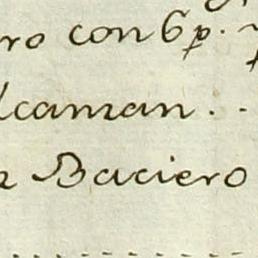 ro con 6 p.
lcaman . .
Baciero